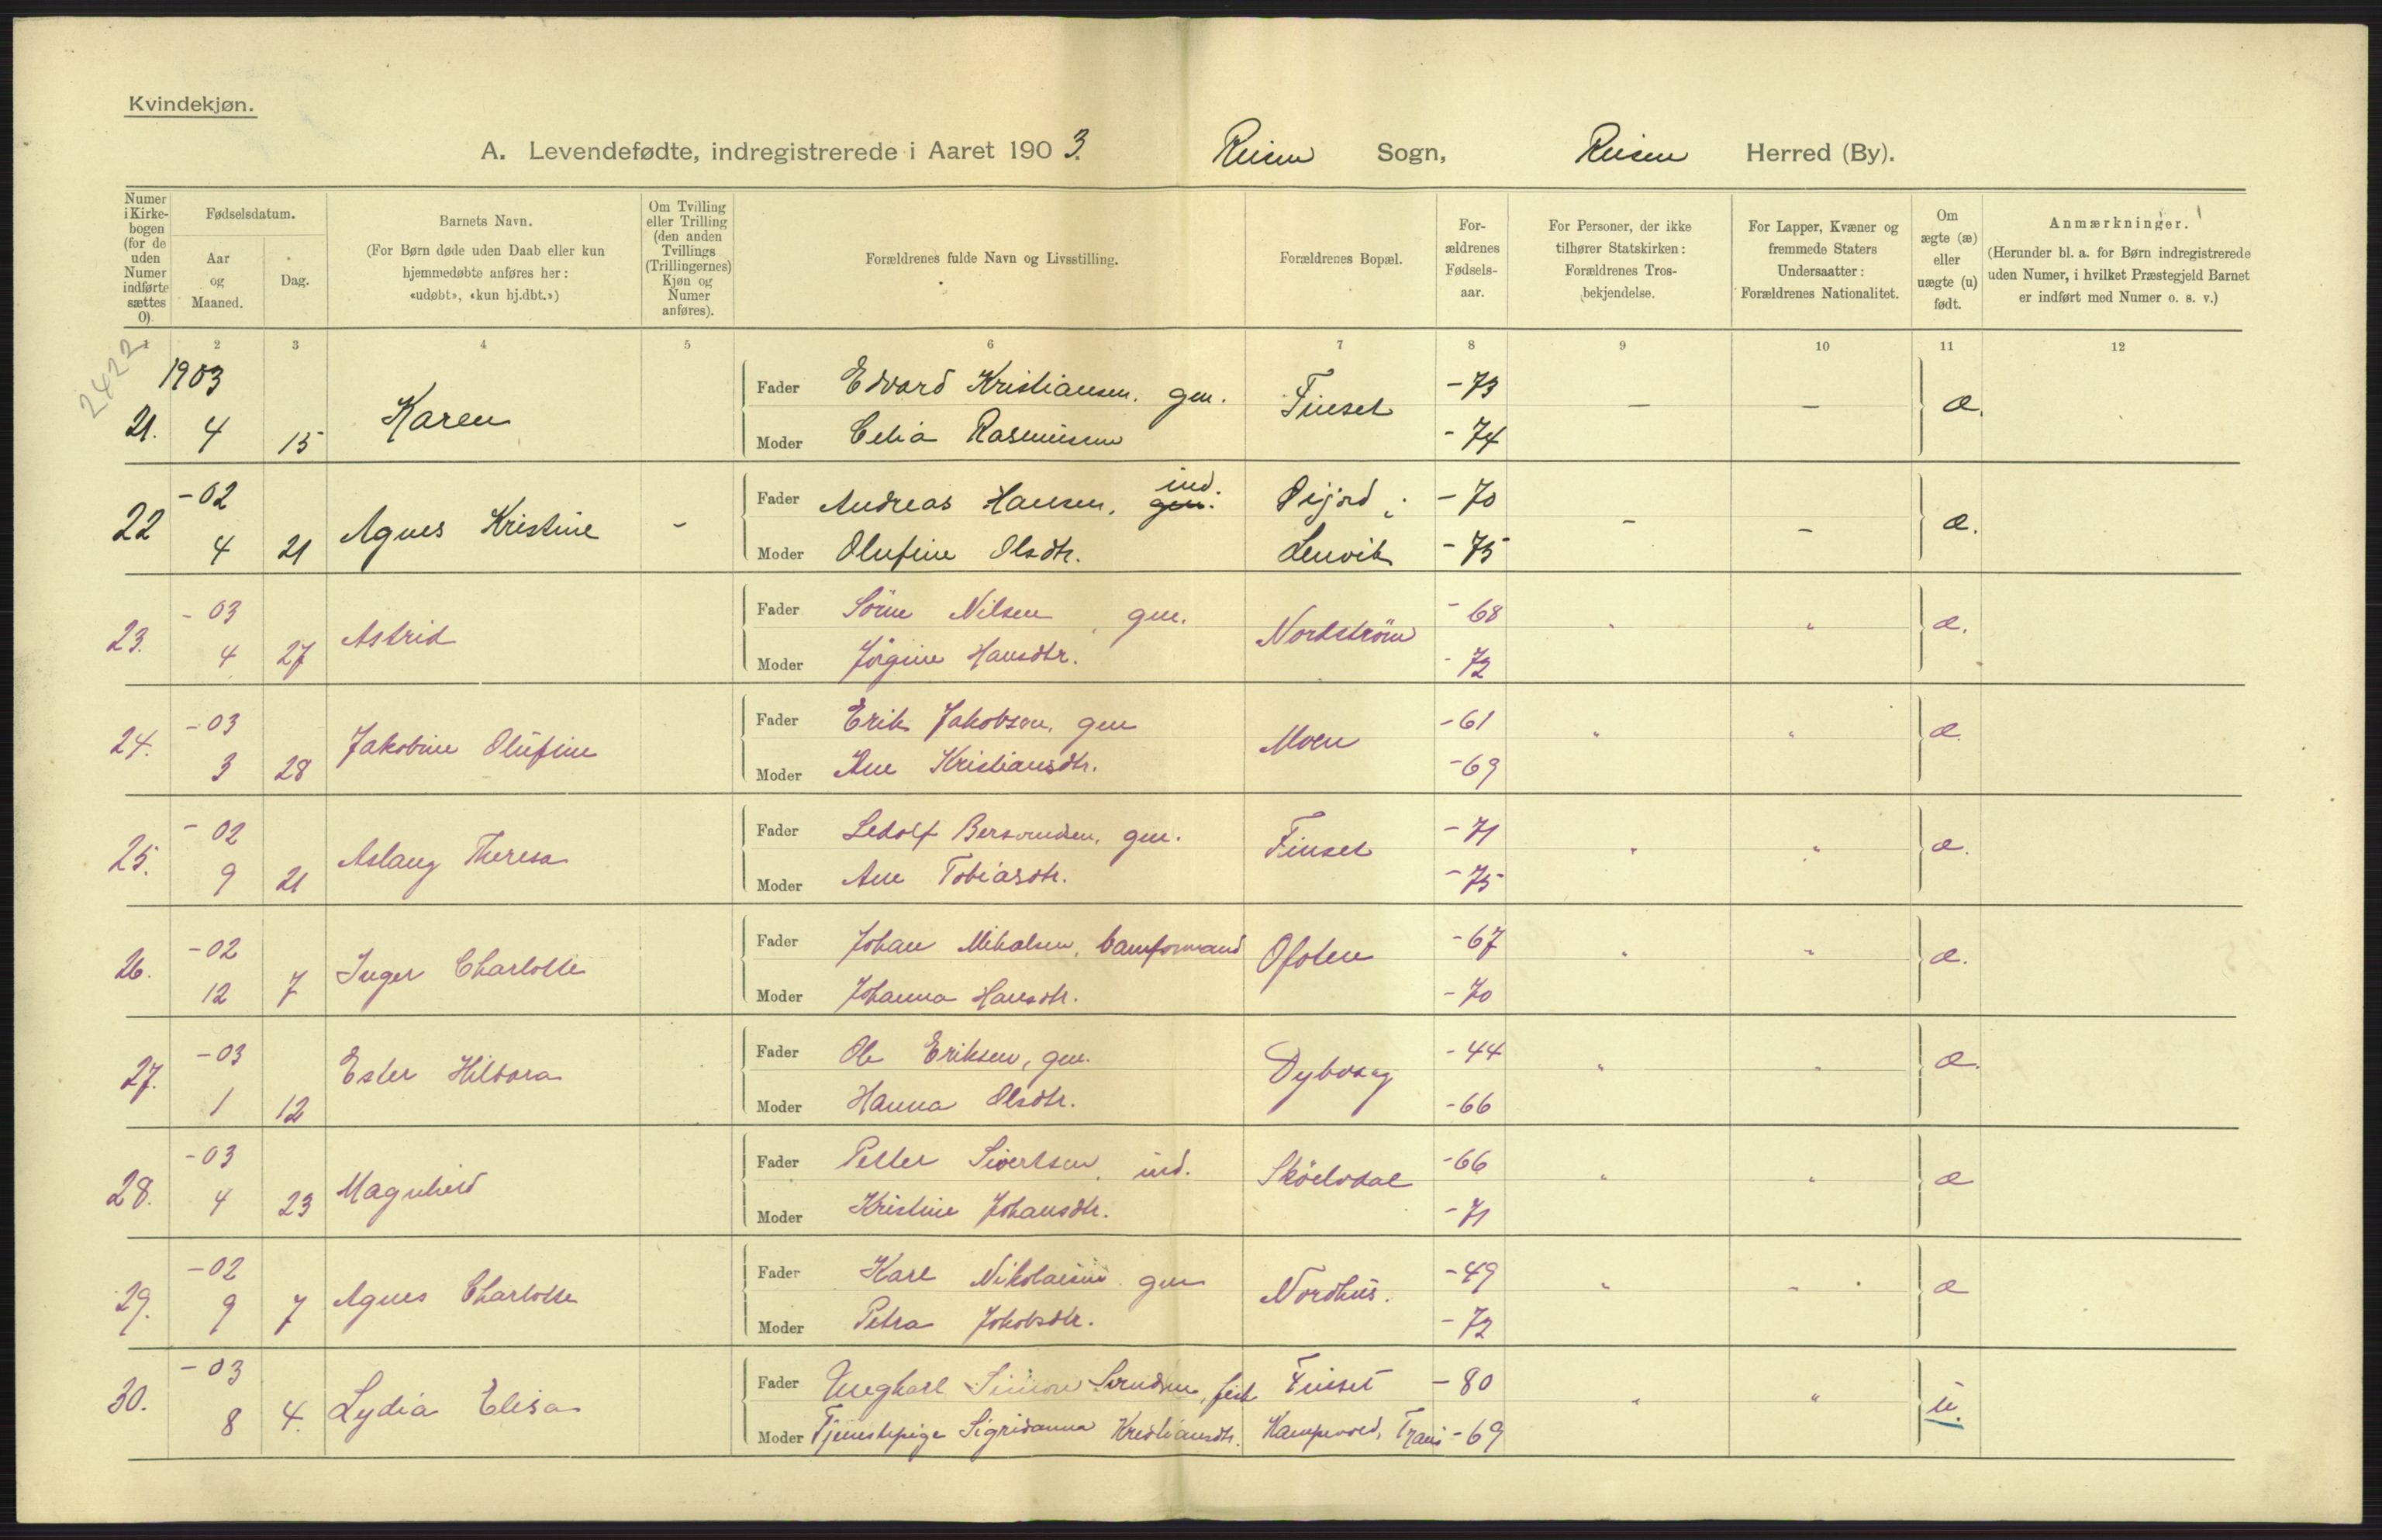 Kvindekjøn.
A. Levendefødte, indregistrerede i Aaret 1903. Reisen Sogn, Reisen Herred (By).
Numer i Kirkebogen (for de uden Numer indførte sættes 0). Fødselsdatum. Aar og Maaned. Dag. Barnets Navn. (For Børn døde uden Daab eller kun hjemmedøbte anføres her: «udøbt», «kun hj.dbt.») Om Tvilling eller Trilling (den anden Tvillings (Trillingernes) Kjøn og Numer anføres). Forældrenes fulde Navn og Livsstilling. Forældrenes Bopæl. Forældrenes Fødselsaar. For Personer, der ikke tilhører Statskirken: Forældrenes Trosbekjendelse. For Lapper, Kvæner og fremmede Staters Undersaatter: Forældrenes Nationalitet. Om ægte (æ) eller uægte (u) født. Anmærkninger. (Herunder bl. a. for Børn indregistrerede uden Numer, i hvilket Præstegjeld Barnet er indført med Numer o. s. v.)
1 2 3 4 5 6 7 8 9 10 11 12
2422
1903 Fader Edvard Kristiansen. gm. Finset -73 — — æ.
21. 4 15 Karen Moder Celia Rasmussen -74
-02 Fader Andreas Hansen, ind. gm. Øijord i -70 - - æ.
22 4 21 Agnes Kristine - Moder Olufine Olsdtr. Lenvik -75
-03 Fader Sörne Nilsen, gm. Nordström -68 " " æ.
23. 4 27 Astrid Moder Jörgine Hansdtr. -72
-03 Fader Erik Jakobsen, gm Moen -61 " " æ.
24. 3 28 Jakobine Olufine Moder Ane Kristiansdtr. -69
-02 Fader Ledolf Bersvendsen, gm. Finset -71 " " æ.
25. 9 21 Aslaug Theresa Moder Ane Tobiasdtr. -75
-02 Fader Johan Mikalsen, Ofoten -67 " " æ.
26. 12 7 Inger Charlotte Moder Johanna Hansdtr. -70
-03 Fader Ole Eriksen, gm. Dybvaag -44 " " æ.
27. 1 12 Ester Hildora Moder Hanna Olsdtr. -66
-03 Fader Petter Sivertsen, ind. Sköelvdal -66 " " æ
28. 4 23 Magnhild Moder Kristine Johansdtr. -71
-02 Fader Karl Nikolaisen gm Nordhus. -49 " - æ
29. 9 7 Agnes Charlotte Moder Petra Jakobsdtr. -72
-03 Fader Ungkarl Simon Svendsen, fisk Finset -80 " " u.
30. 8 4. Lydia Elisa Moder Tjenestepige Sigridanna Kristiansdtr. Kampevold, -69